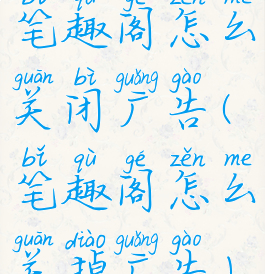 bǐ qù gé zěn me
笔趣阁怎么
guān bì guǎng gào
关闭广告(
bǐ qù gé zěn me
笔趣阁怎么
guān diào guǎng gào
关掉广告)